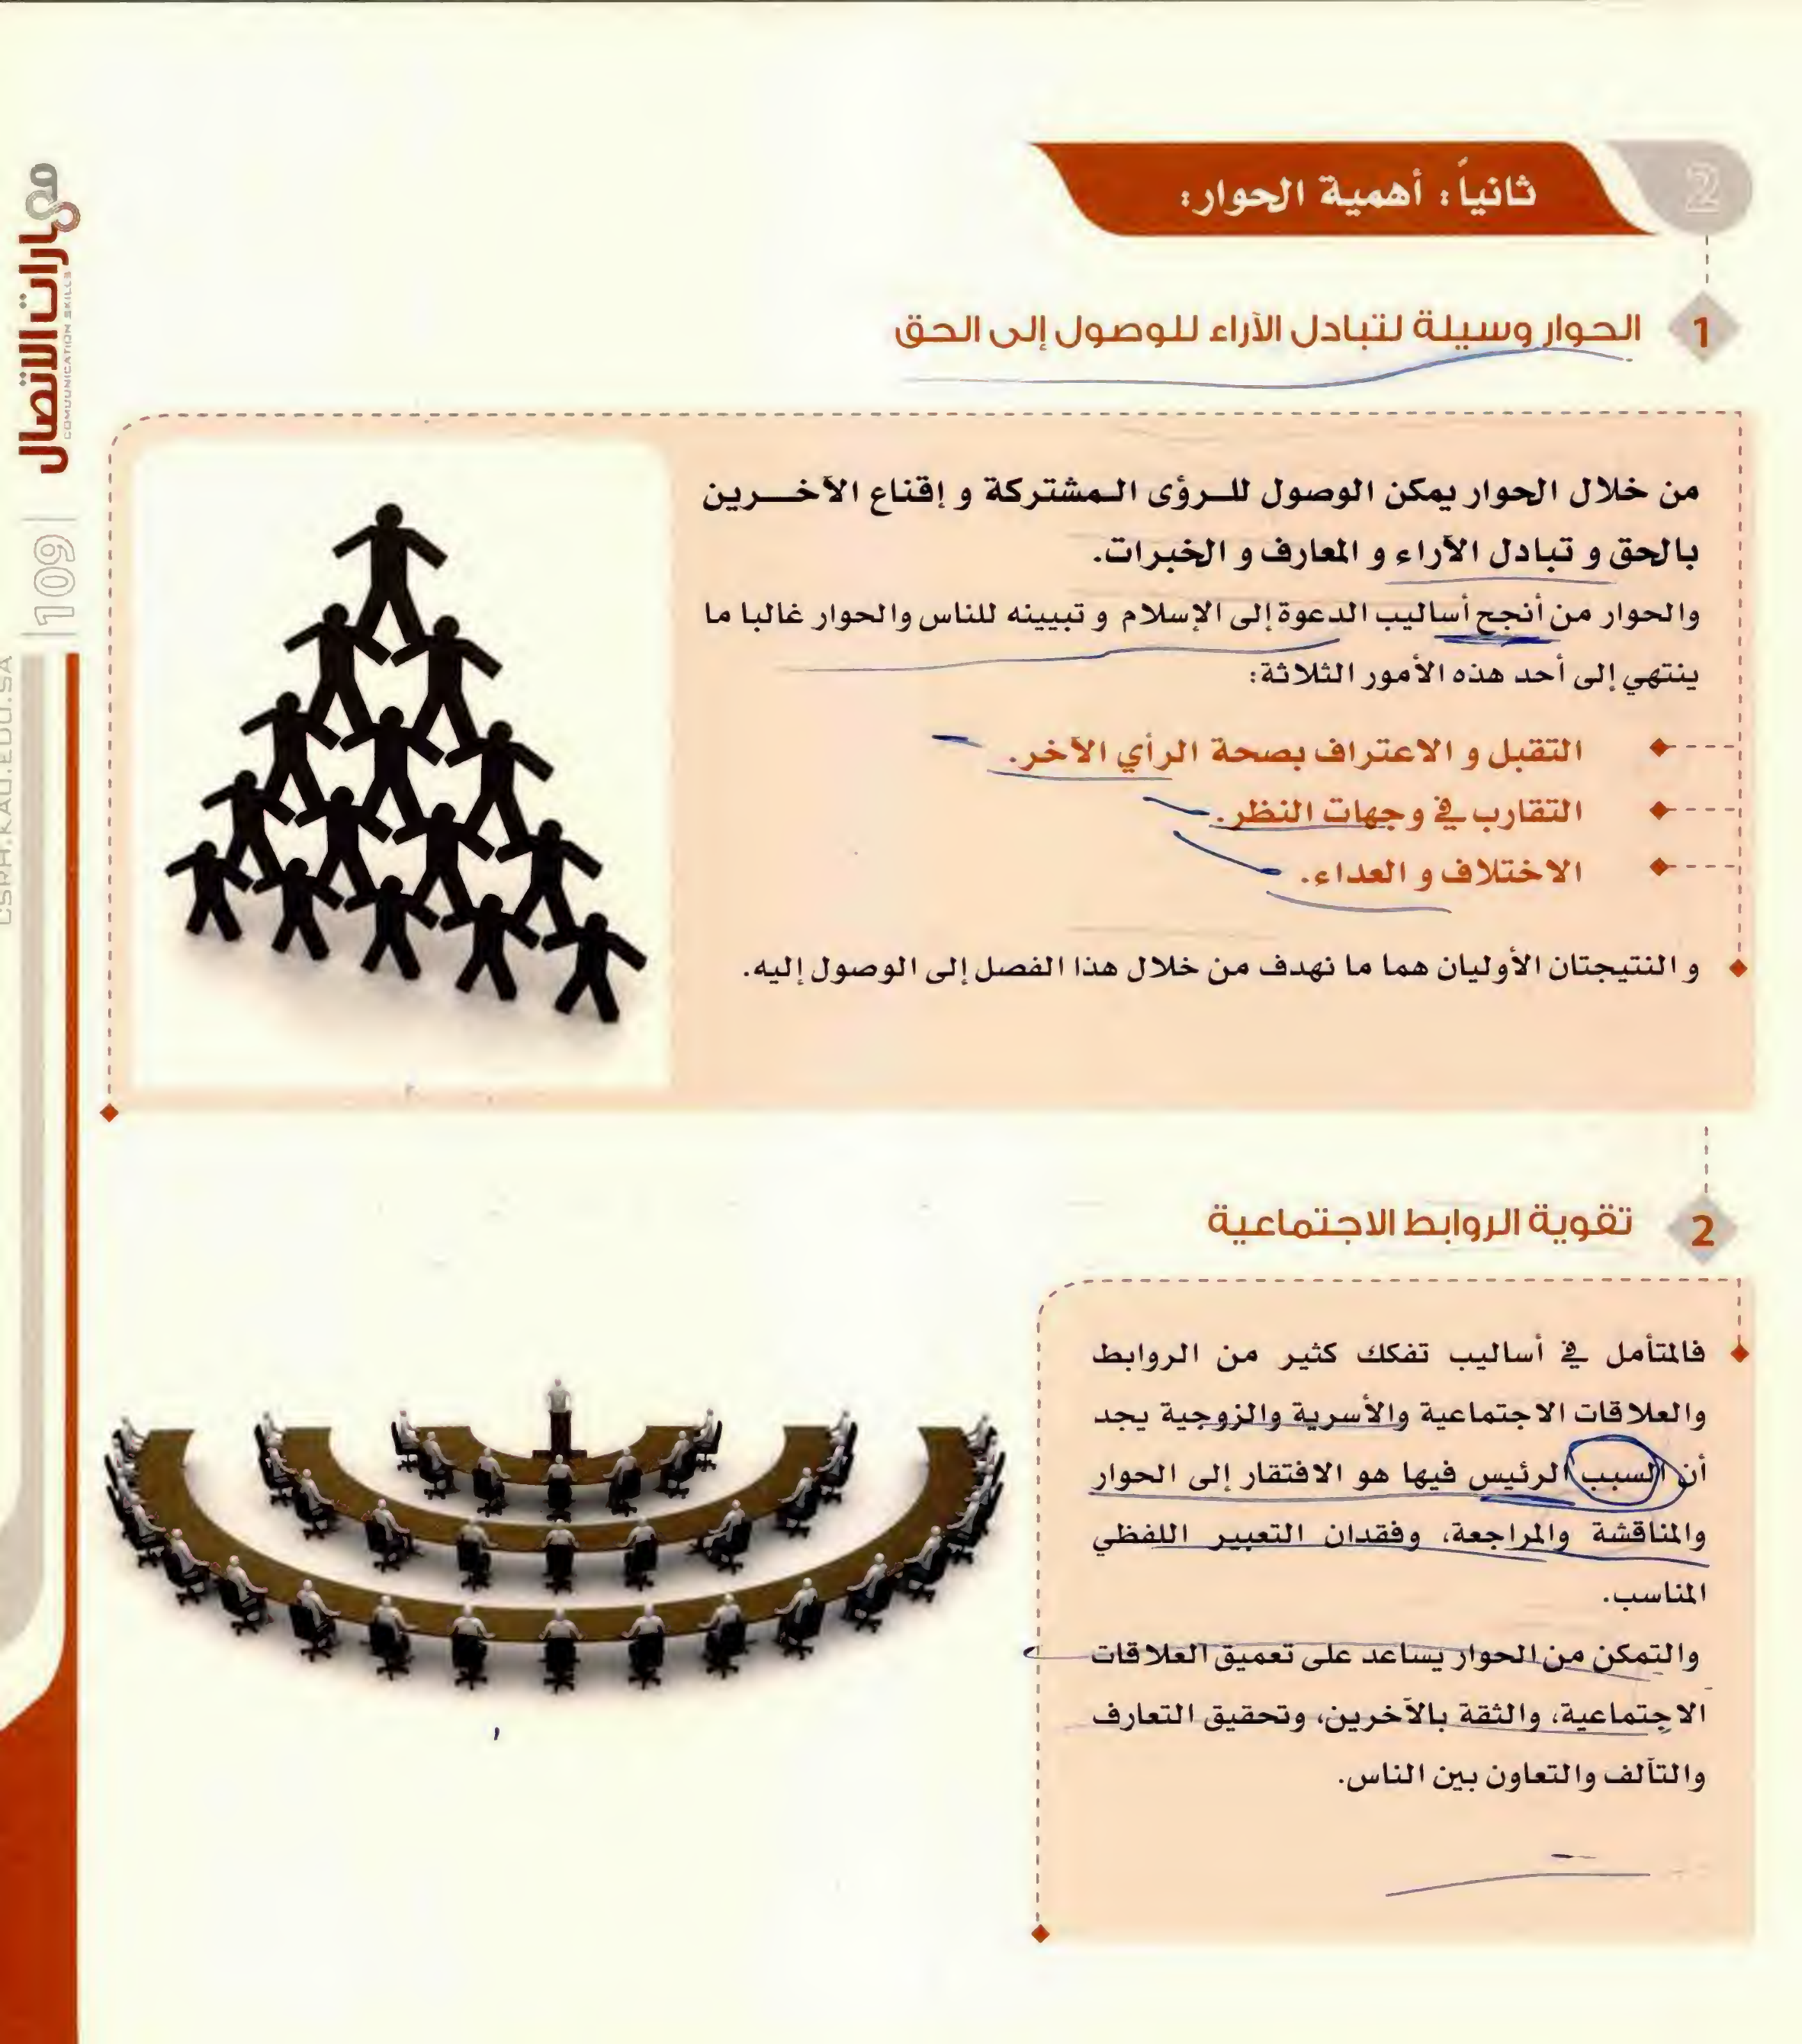 2
ثانياً: أهمية الحوار:
1
الحوار وسيلة لتبادل الآراء للوصول إلى الحق
من خلال الحوار يمكن الوصول للرؤى المشتركة و إقناع الآخرين
بالحق و تبادل الآراء و المعارف و الخبرات.
والحوار من أنجح أساليب الدعوة إلى الإسلام و تبيينه للناس والحوار غالبا ما
ينتهي إلى أحد هذه الأمور الثلاثة:
التقبل و الاعتراف بصحة الرأي الآخر.
التقارب في وجهات النظر.
الاختلاف و العداء.
و النتيجتان الأوليان هما ما نهدف من خلال هذا الفصل إلى الوصول إليه.
2
تقوية الروابط الاجتماعية
فالمتأمل في أساليب تفكك كثير من الروابط
والعلاقات الاجتماعية والأسرية والزوجية يجد
أن السبب الرئيس فيها هو الافتقار إلى الحوار
والمناقشة والمراجعة، وفقدان التعبير اللفظي
المناسب.
والتمكن من الحوار يساعد على تعميق العلاقات
الاجتماعية، والثقة بالآخرين، وتحقيق التعارف
والتآلف والتعاون بين الناس.
مهارات الاتصال
COMMUNICATION SKILLS
109
CSPA.KAU.EDU.SA